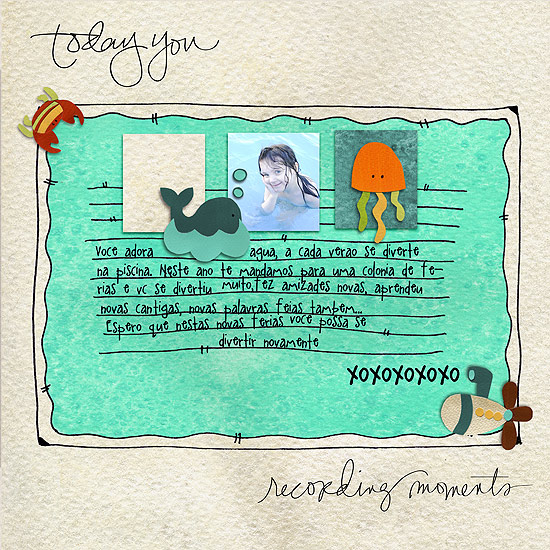 today you
Voce adora agua, a cada verao se diverte
na piscina. Neste ano te mandamos para uma colonia de fe-
rias e vc se divertiu muito,fez amizades novas, aprendeu
novas cantigas, novas palavras feias tambem...
Espero que nestas novas ferias voce possa se
divertir novamente
xoxoxoxoxo
recording moments